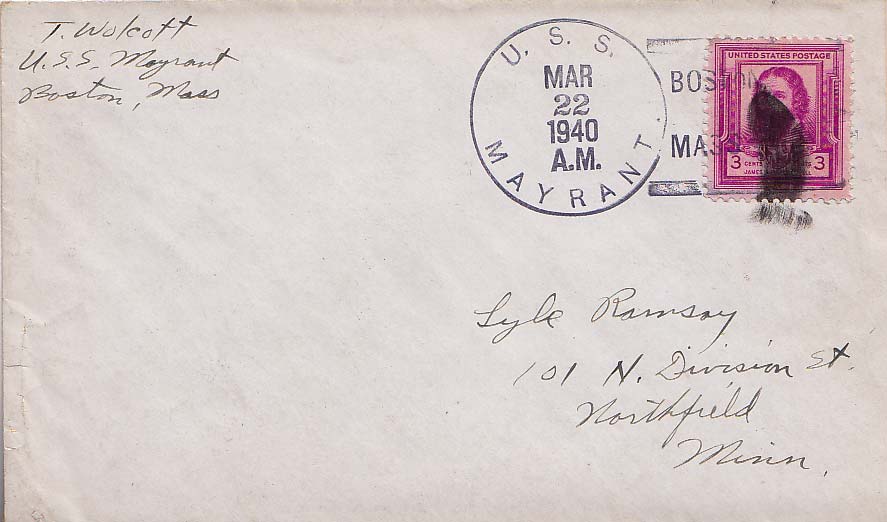 T. Wolcott
U.S.S. Mayrant
Boston, Mass
U. S. S. MAYRANT.
MAR
22
1940
A.M.
BOSTON,
MASS
UNITED STATES POSTAGE
3 CENTS 3
JAMES
Lyle Ramsay
101 N. Division St.
Northfield
Minn.